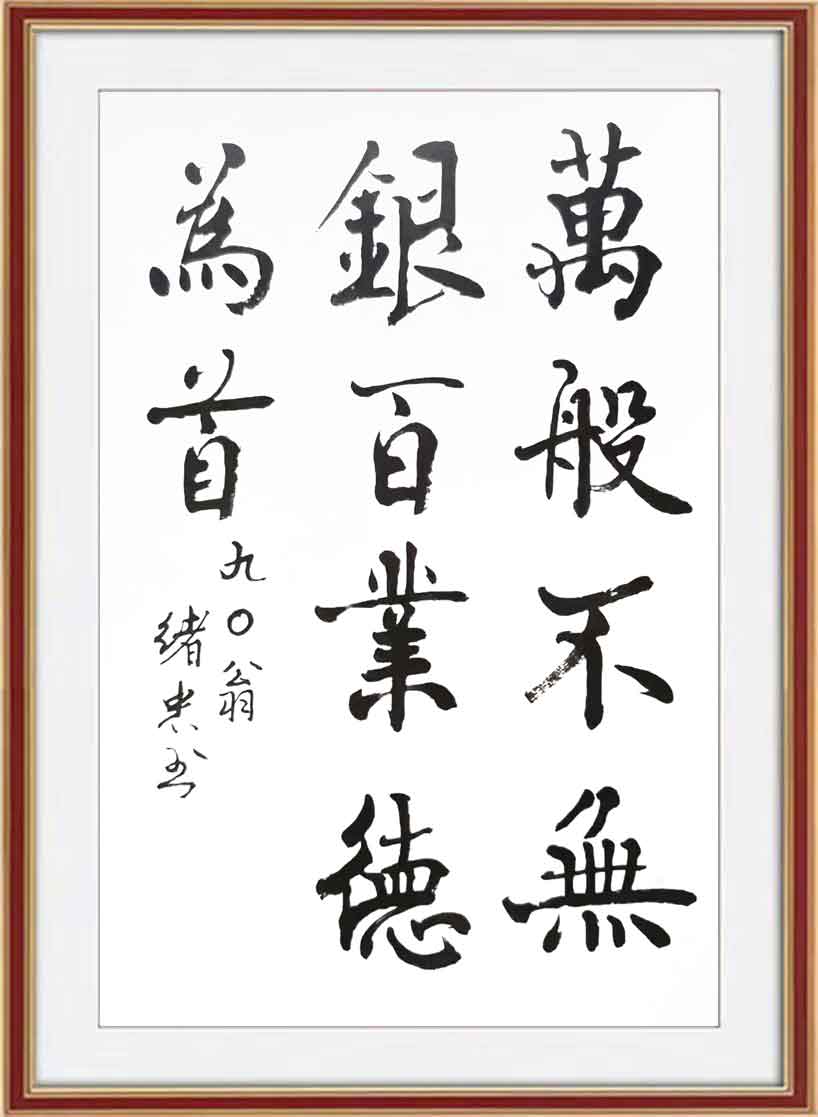 萬般不無
銀百業德
為首
九〇翁
緒忠书